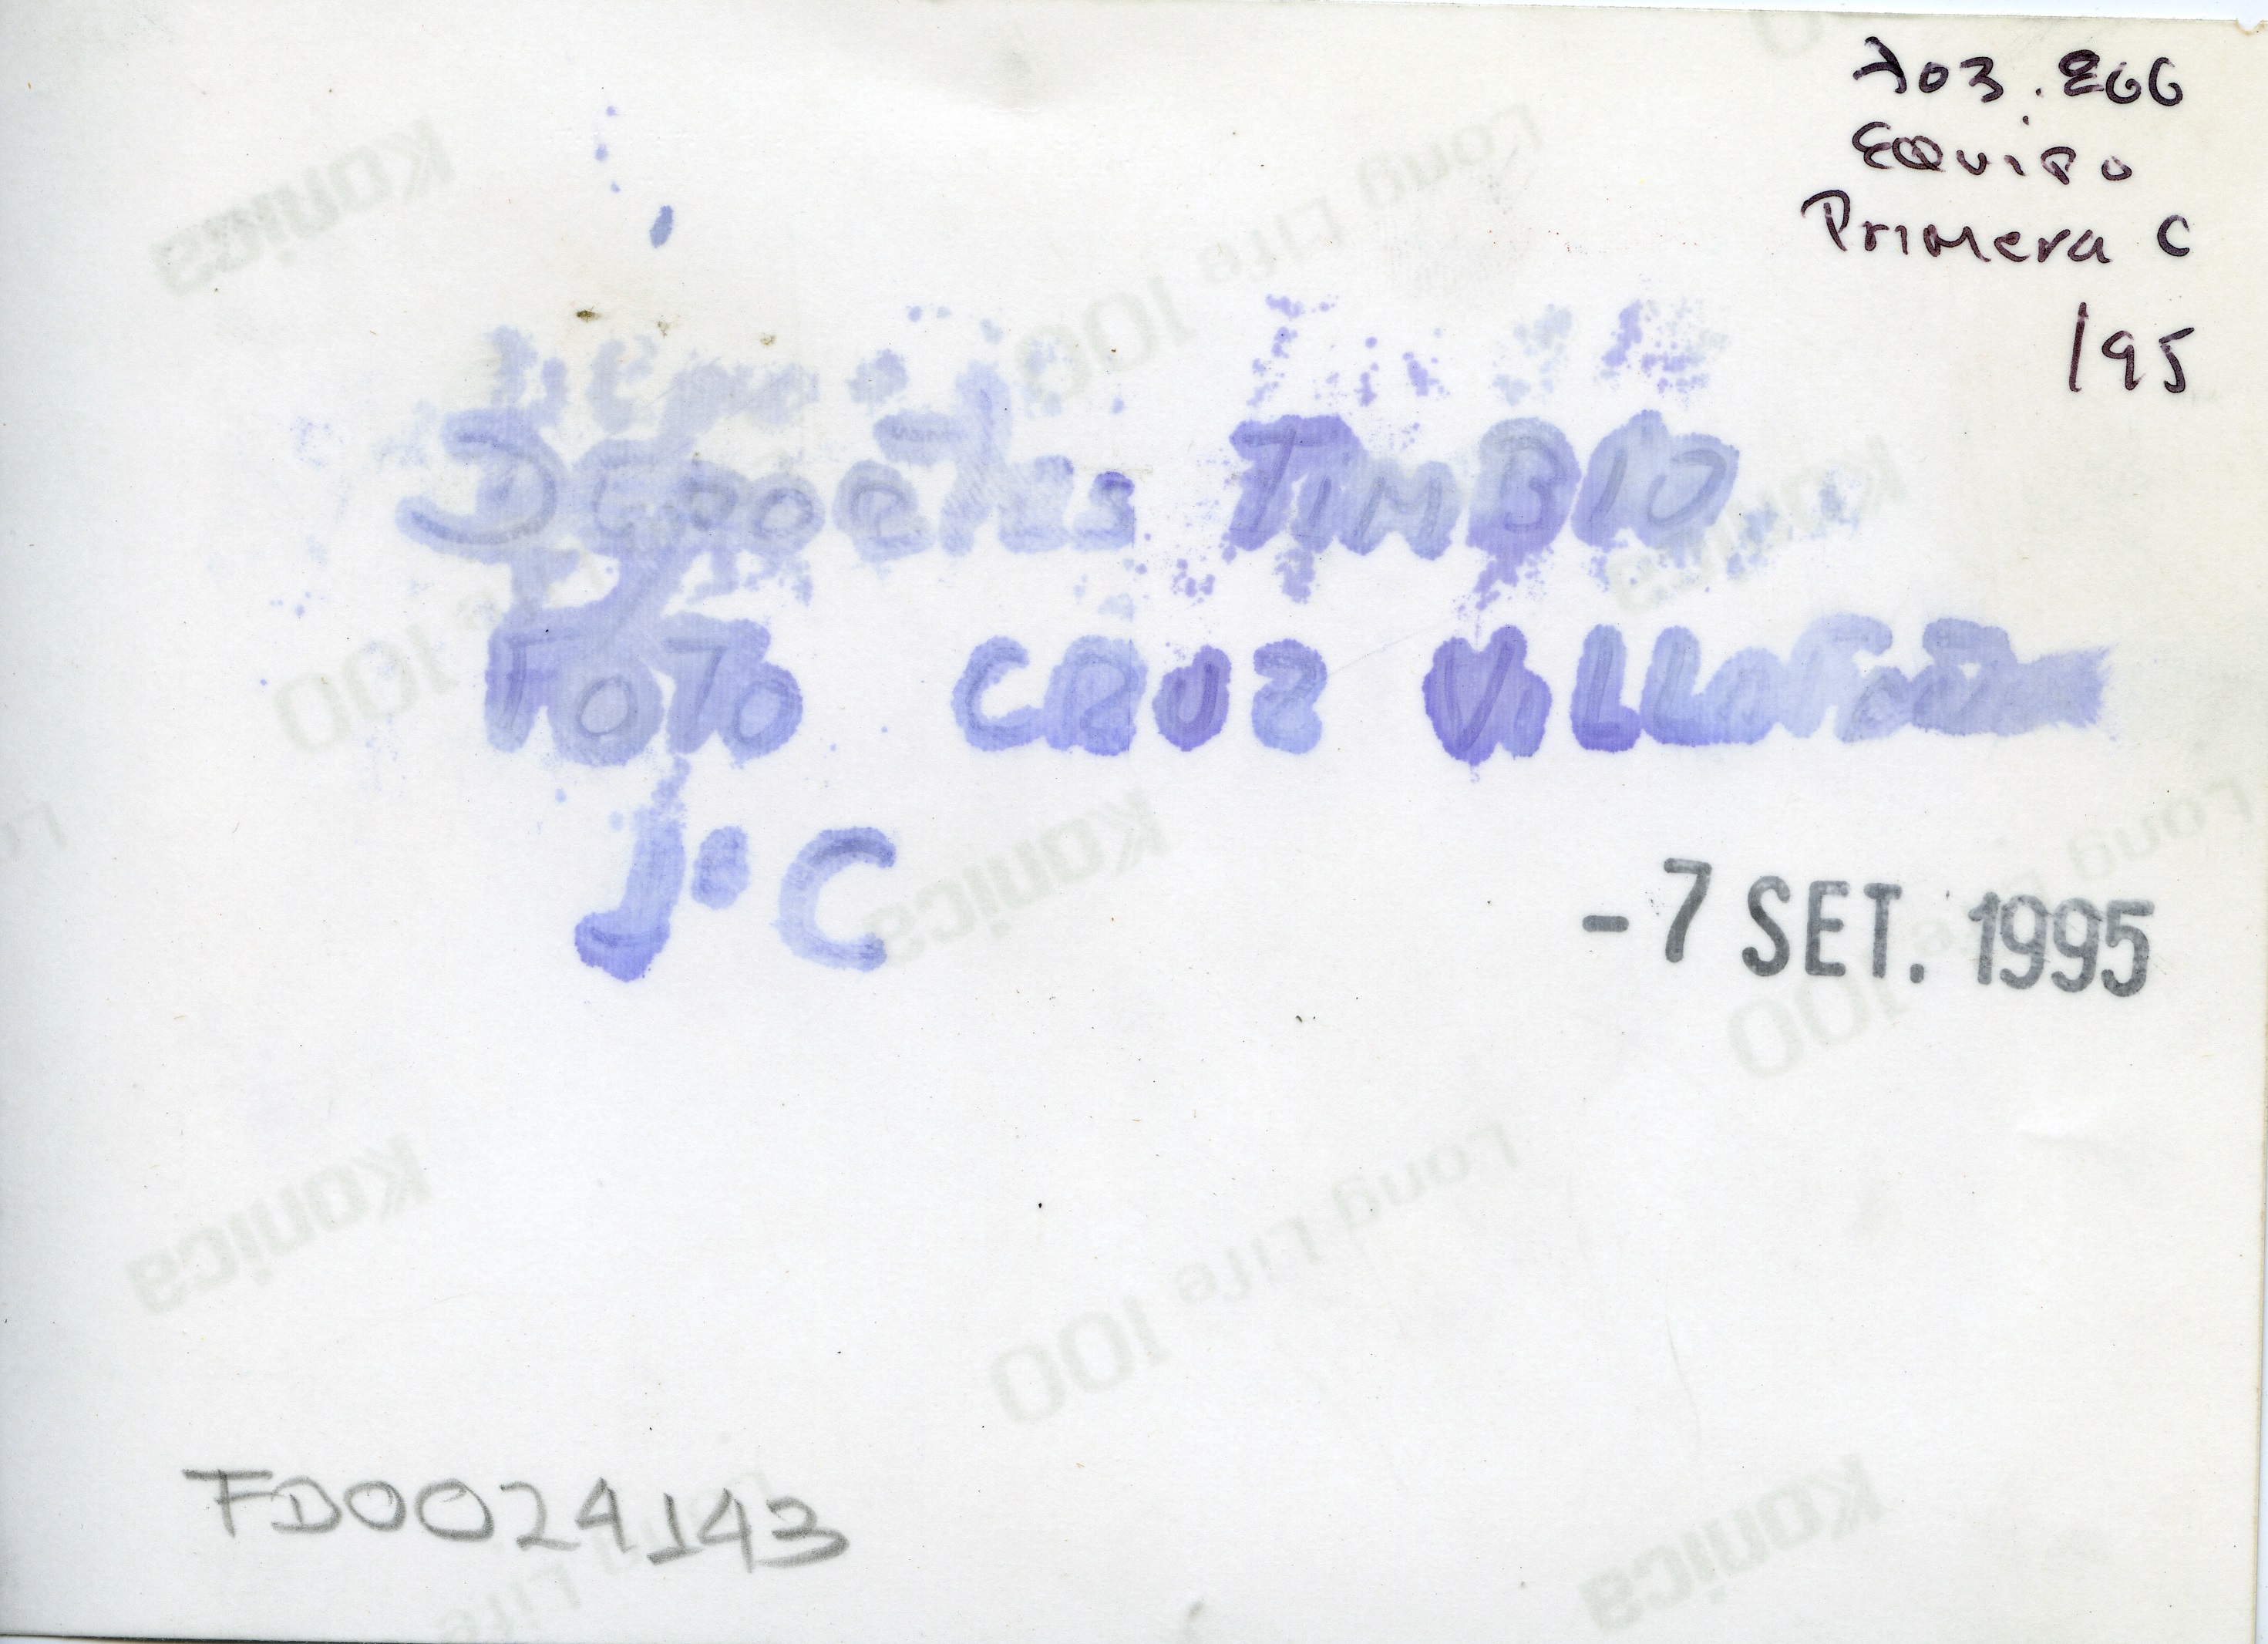 703.266
EQUIPO
Primera C
/95
DEPORTES TIMBIO
FOTO CRUZ
J.C
-7 SET. 1995
Konica
Long Life 100
FD0024143